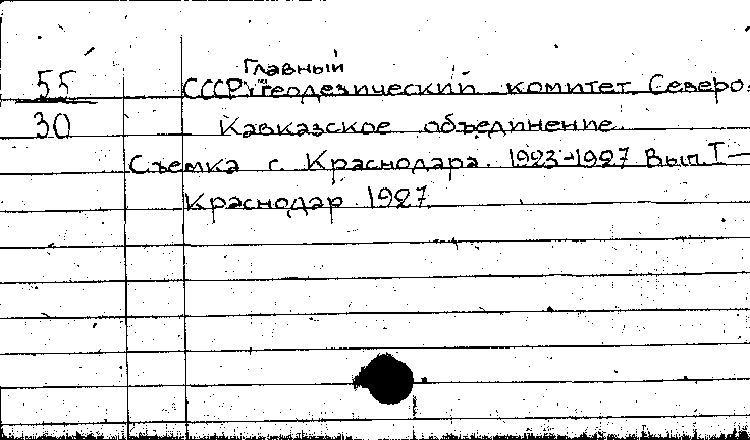 Главный
55 СССР. геодезический комитет. Северо-
30 Кавказское объединение.
Съемка г. Краснодара. 1923-1927 Вып. I—
Краснодар 1927